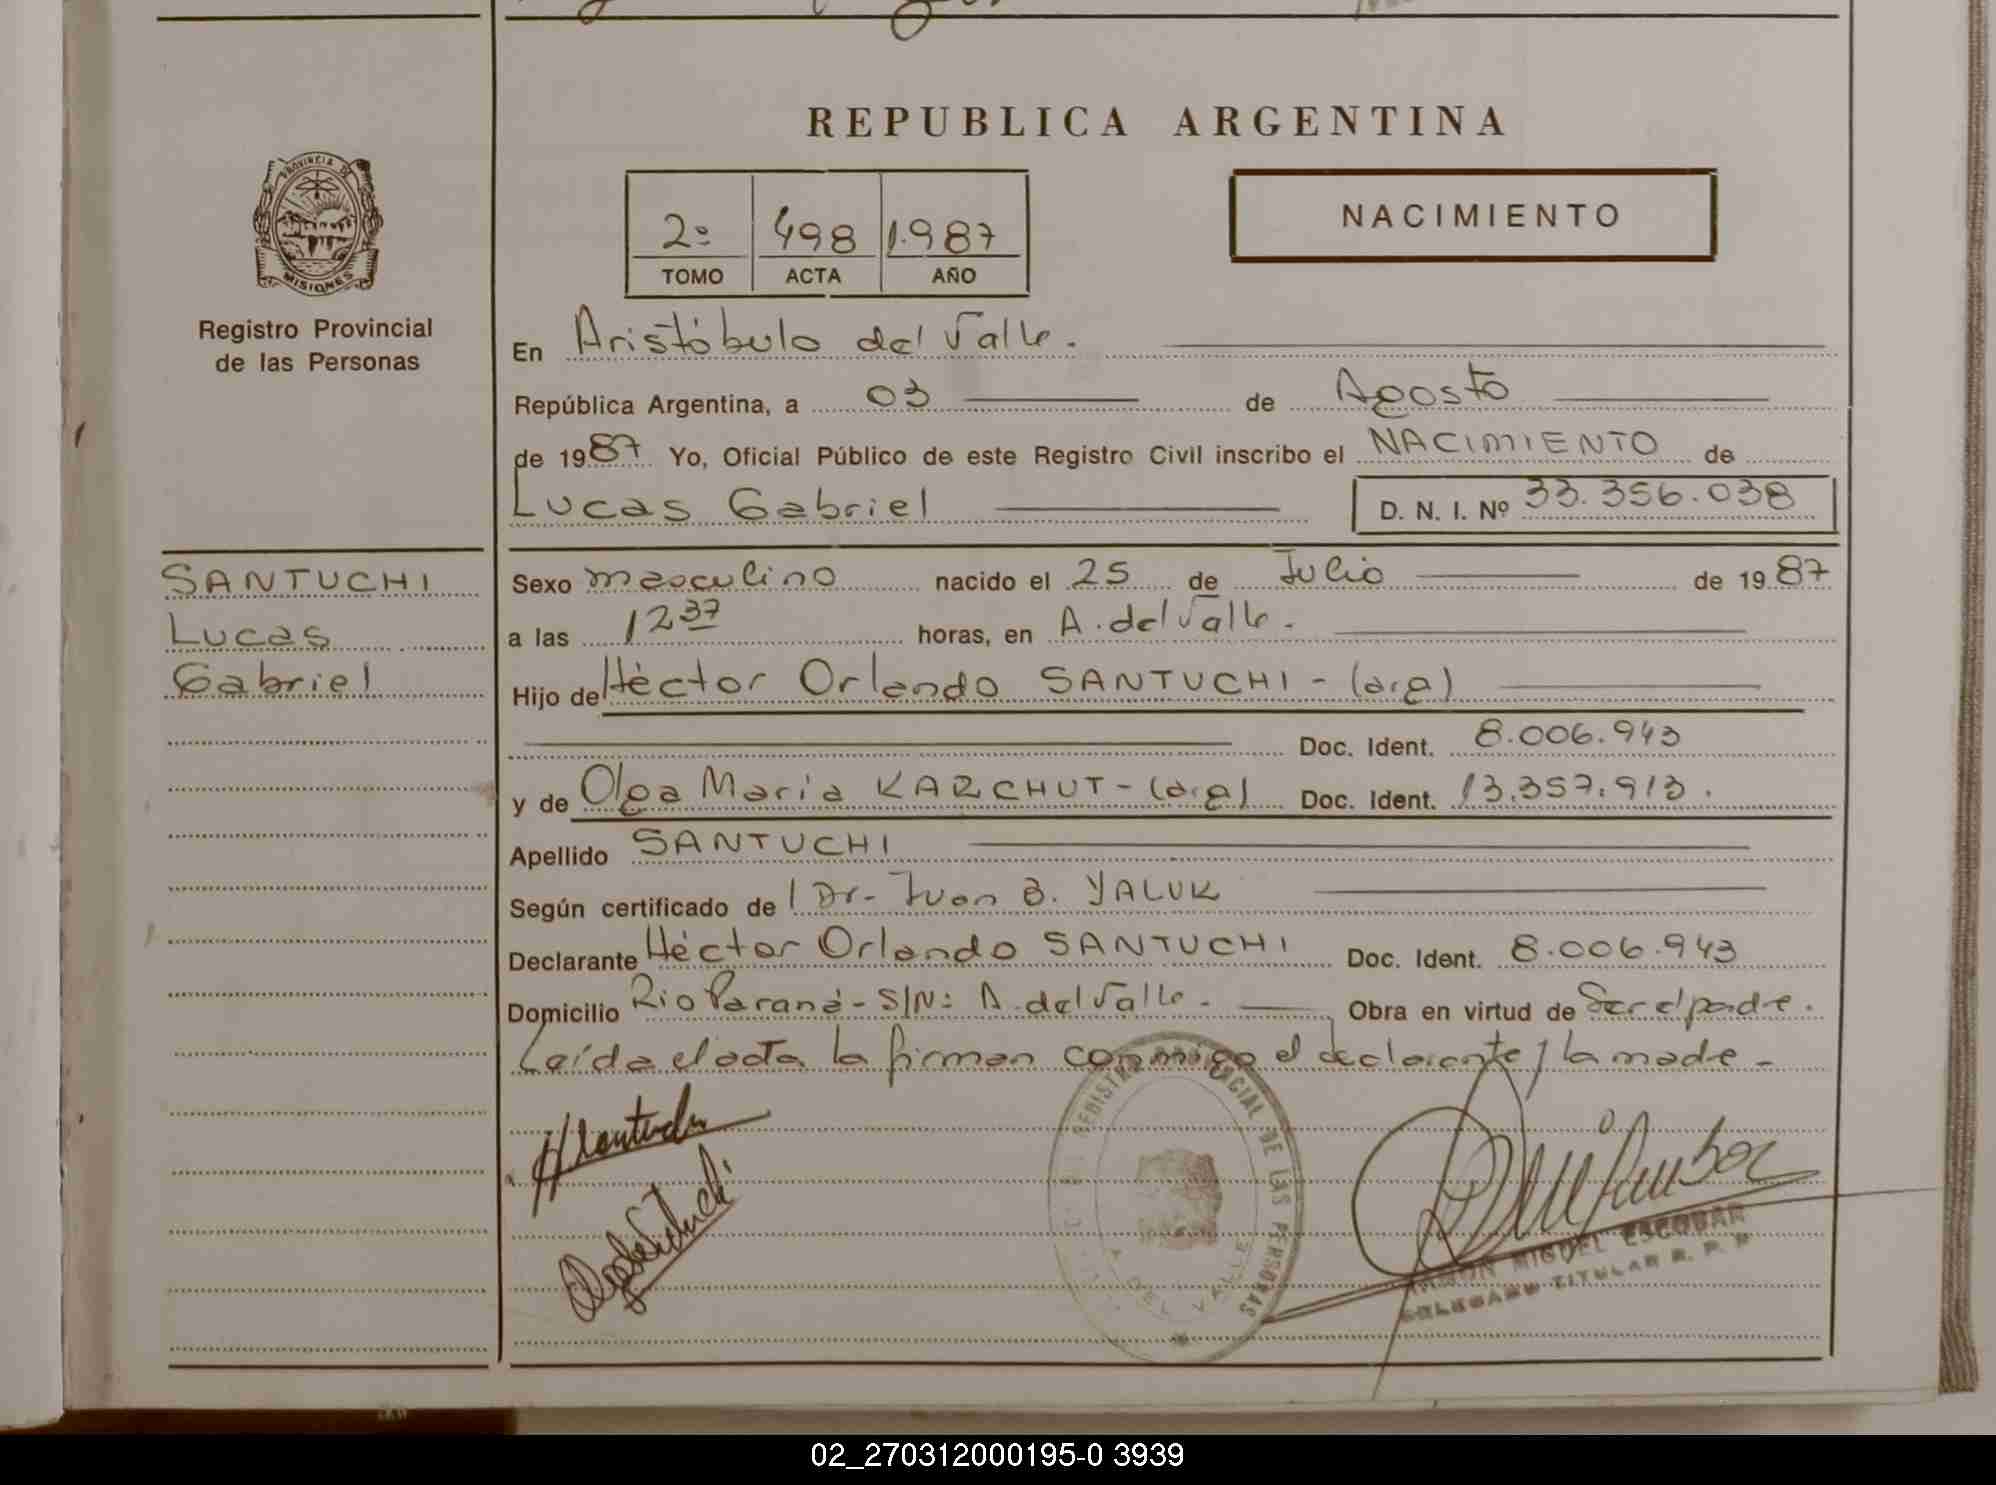 REPUBLICA ARGENTINA
PROVINCIA DE
MISIONES
Registro Provincial
de las Personas
2º 498 1.987
TOMO ACTA AÑO
NACIMIENTO
En Aristóbulo del Valle.
República Argentina, a 03 de Agosto
de 1987 Yo, Oficial Público de este Registro Civil inscribo el NACIMIENTO de
Lucas Gabriel D. N. I. Nº 33.356.038
SANTUCHI
Lucas
Gabriel
Sexo masculino nacido el 25 de Julio de 1987
a las 12 37 horas, en A. del Valle.
Hijo de Héctor Orlando SANTUCHI - (arg)
Doc. Ident. 8.006.943
y de Olga María KARCHUT - (arg) Doc. Ident. 13.357.913.
Apellido SANTUCHI
Según certificado de l Dr. Juan B. YALUK
Declarante Héctor Orlando SANTUCHI Doc. Ident. 8.006.943
Domicilio Rio Paraná - S/N: A. del Valle. Obra en virtud de Ser el padre.
Leída el acta la firman conmigo el declarante y la madre -
REGISTRO PROVINCIAL DE LAS PERSONAS
A. DEL VALLE
MIGUEL ESCOBAR
DELEGADO TITULAR R. P. P.
02_270312000195-0 3939